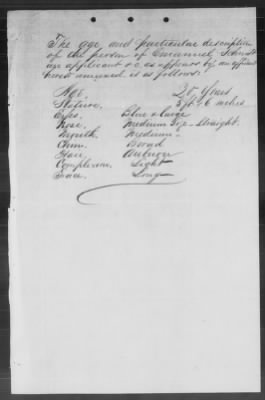 The age and particular description
of the person of Emanuel
an applicant &c as appears by an affidavit
hereto annexed is as follows:
Age. 25 Years
Stature. 5 ft. 6 inches
Eyes. Blue & Large
Nose. Medium size - Straight.
Mouth. Medium -
Chin. Broad
Hair. Auburn
Complexion. Light
Face. Long